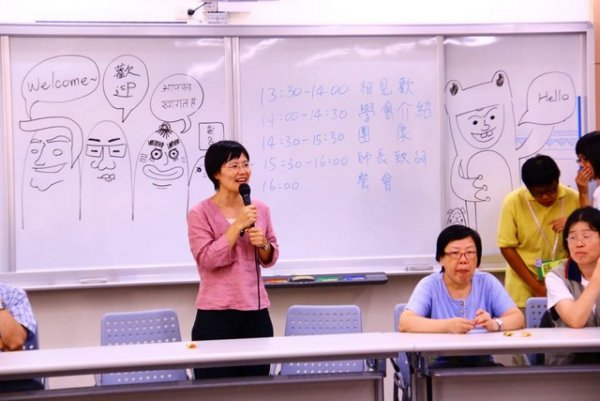 Welcome~
歡
迎
आपका
स्वागत है
13:30-14:00 相見歡
14:00-14:30 學會介紹
14:30-15:30 團 康
15:30-16:00 師長致詞
16:00 散會
Hello